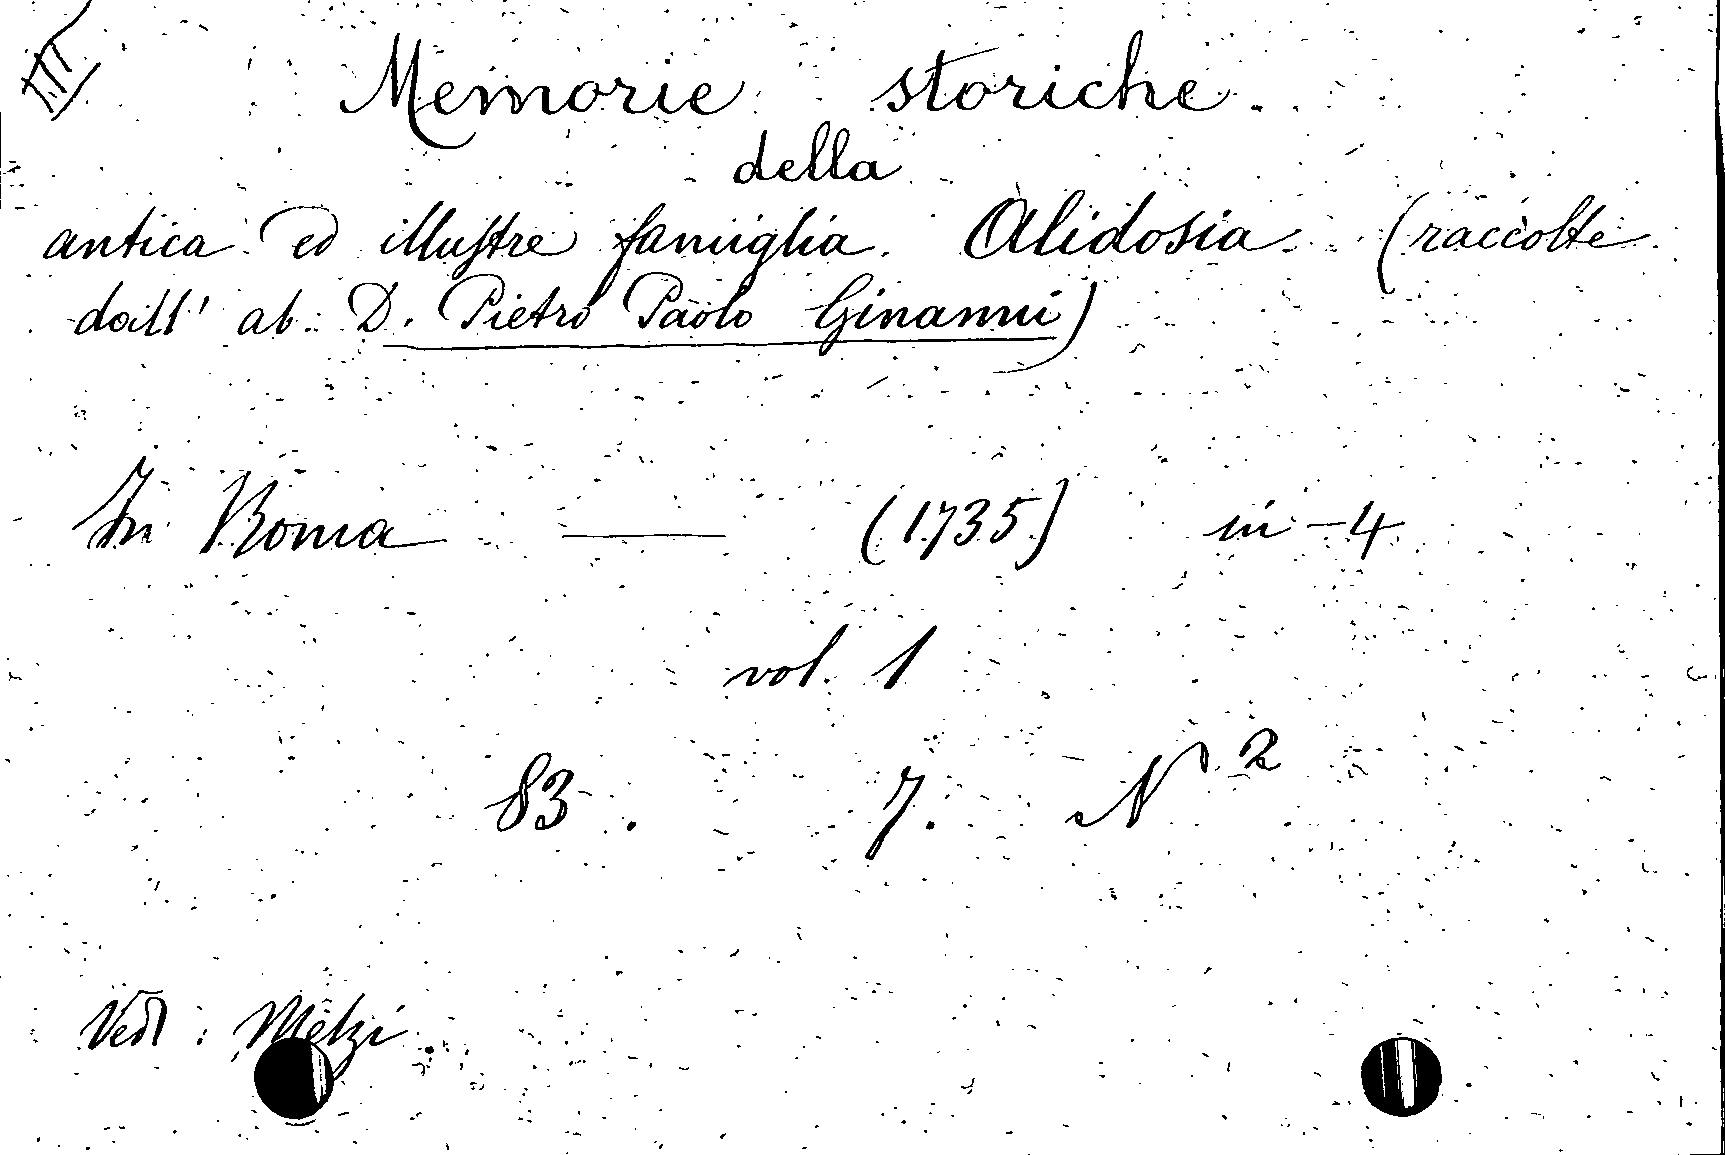 III
Memorie storiche
della
antica ed illustre famiglia Alidosia (raccolte
dall' ab. D. Pietro Paolo Ginanni)
In Roma — (1735) in-4
vol. 1
83. 7. N 2
Vedi: Melzi